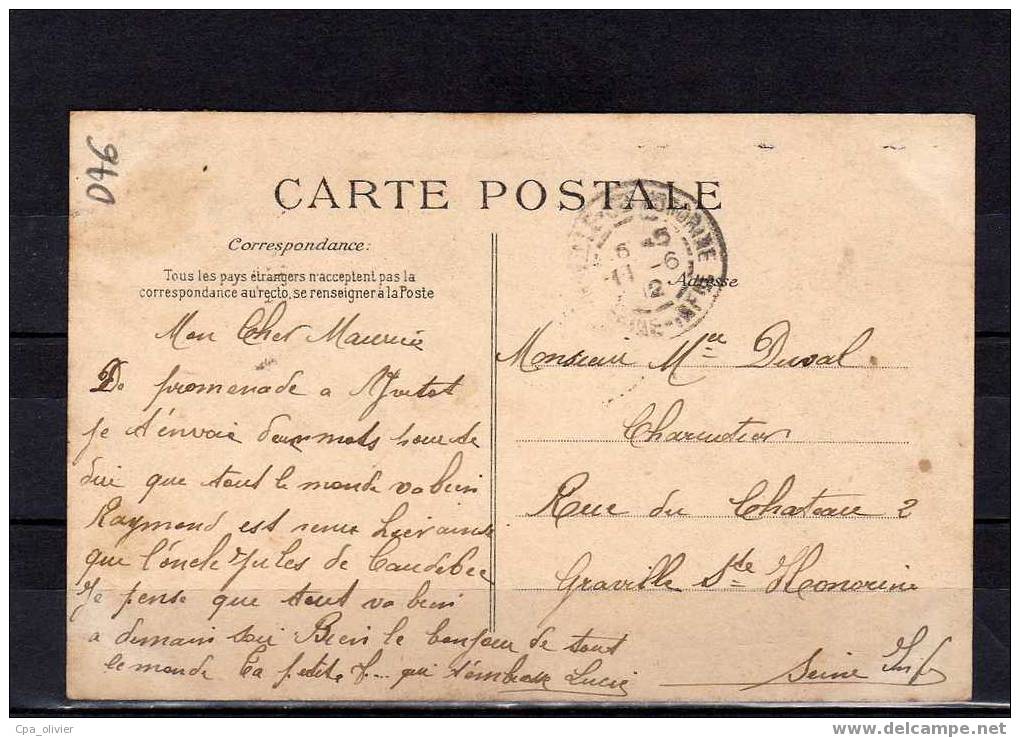 D46
CARTE POSTALE
Correspondance:
Tous les pays étrangers n'acceptent pas la
correspondance au recto, se renseigner à la Poste
Adresse
Mon Cher Maurice
De promenade a Yvetot
je t'envoie deux mots pour te
dire que tout le monde va bien
Raymond est venu hier ainsi
que l'oncle Jules de Caudebec
Je pense que tout va bien
a demain soir Bien le bonjour de tout
le monde Ta petite f... qui t'embrasse Lucie
Monsieur Mce Duval
Charcutier
Rue du Chateau 2
Graville Ste Honorine
Seine Infre
Cpa_olivier
www.delcampe.net